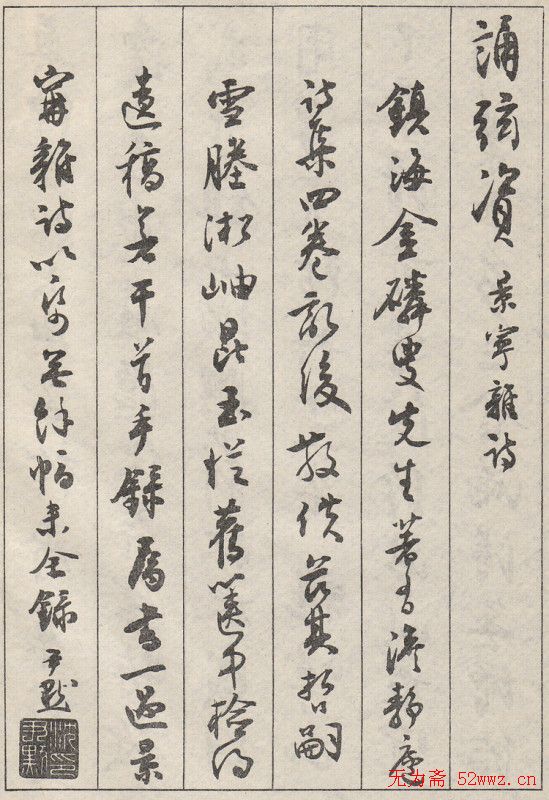 誦弦資 景寧雜詩
鎮海金磷叟先生著有澹静廬
詩集四卷歿後散佚茲其哲嗣
雪塍淞岫昆玉從舊篋中檢得
遺稿若干首手錄屬書一過景
甯雜詩以無餘幅未全錄 尹默
无为斋 52wwz.cn